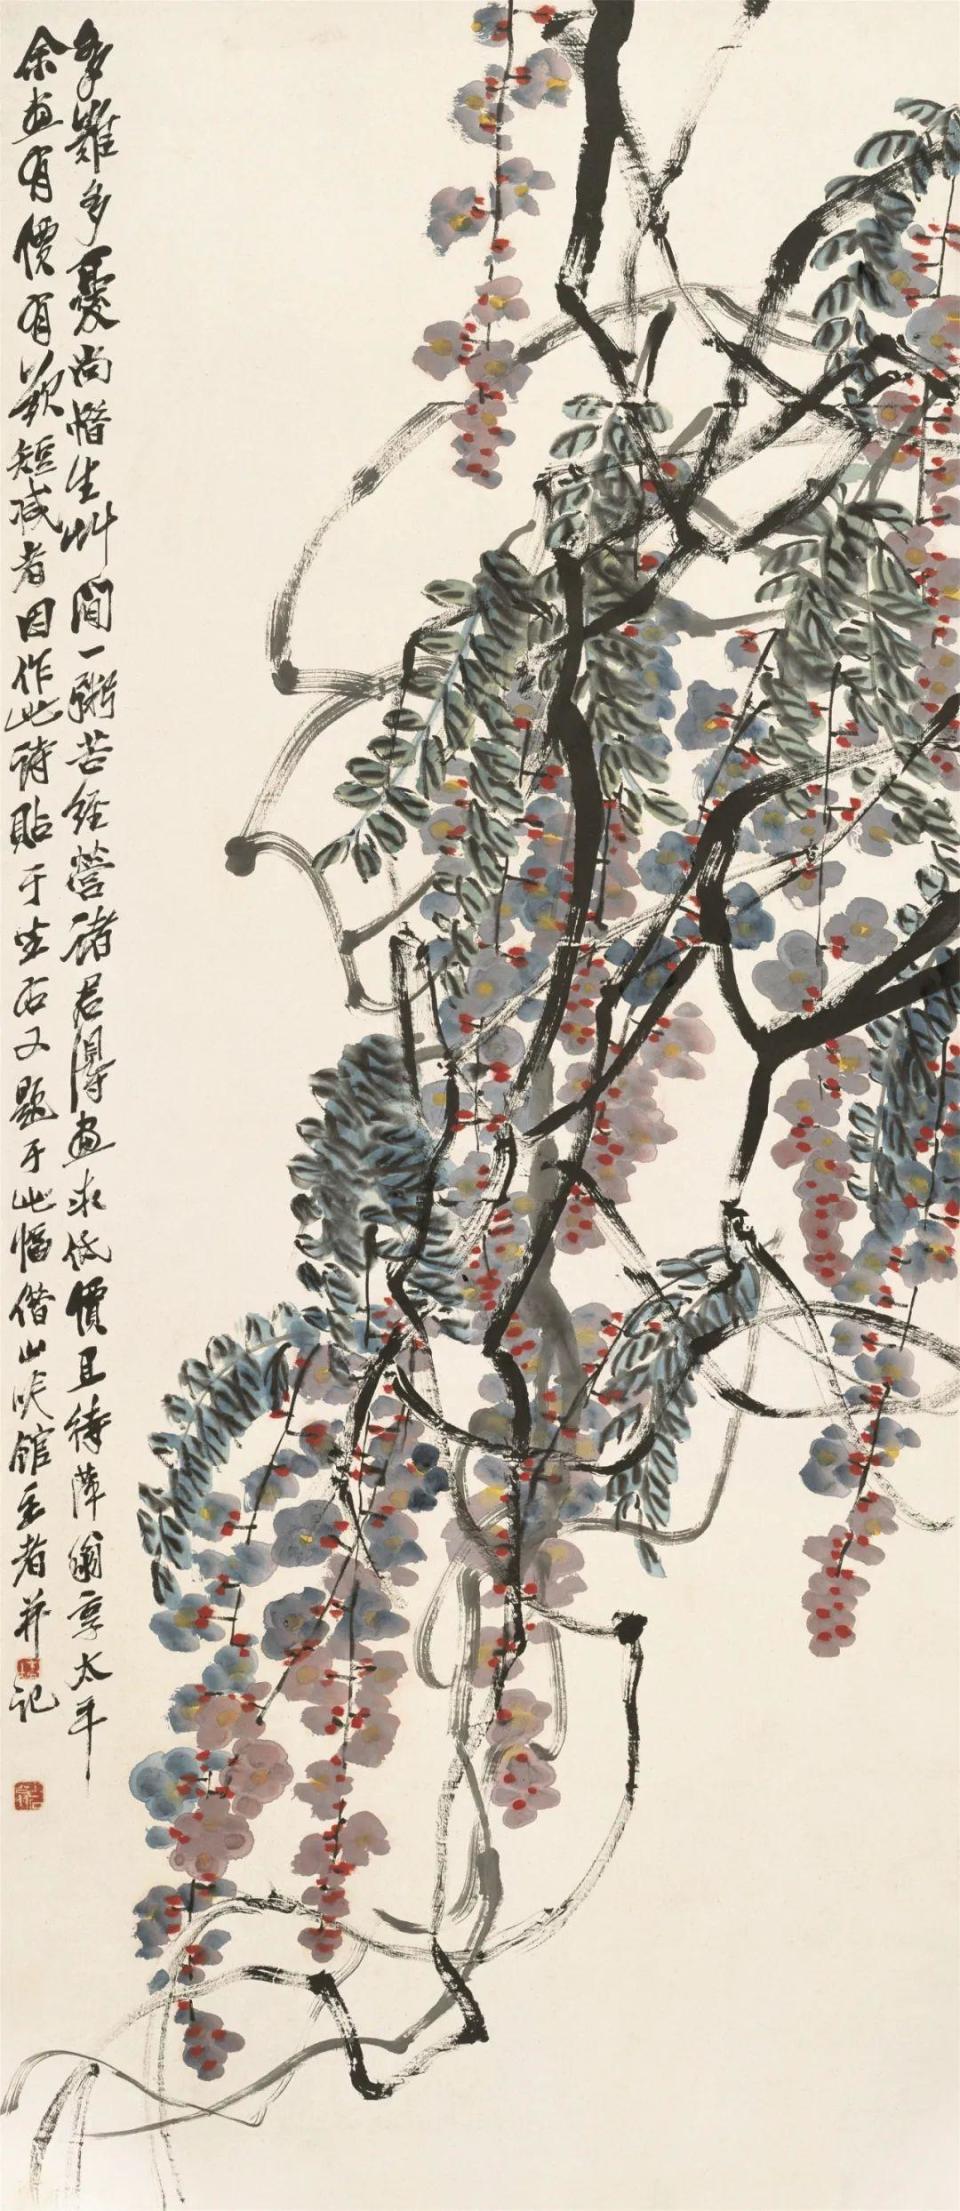 多難多憂尚惜生艸間一粥苦經營諸君得畫求低價且待萍翁享太平
余畫有價有欲短減者因作此詩貼于坐右又題于此幅借山吟館主者并記